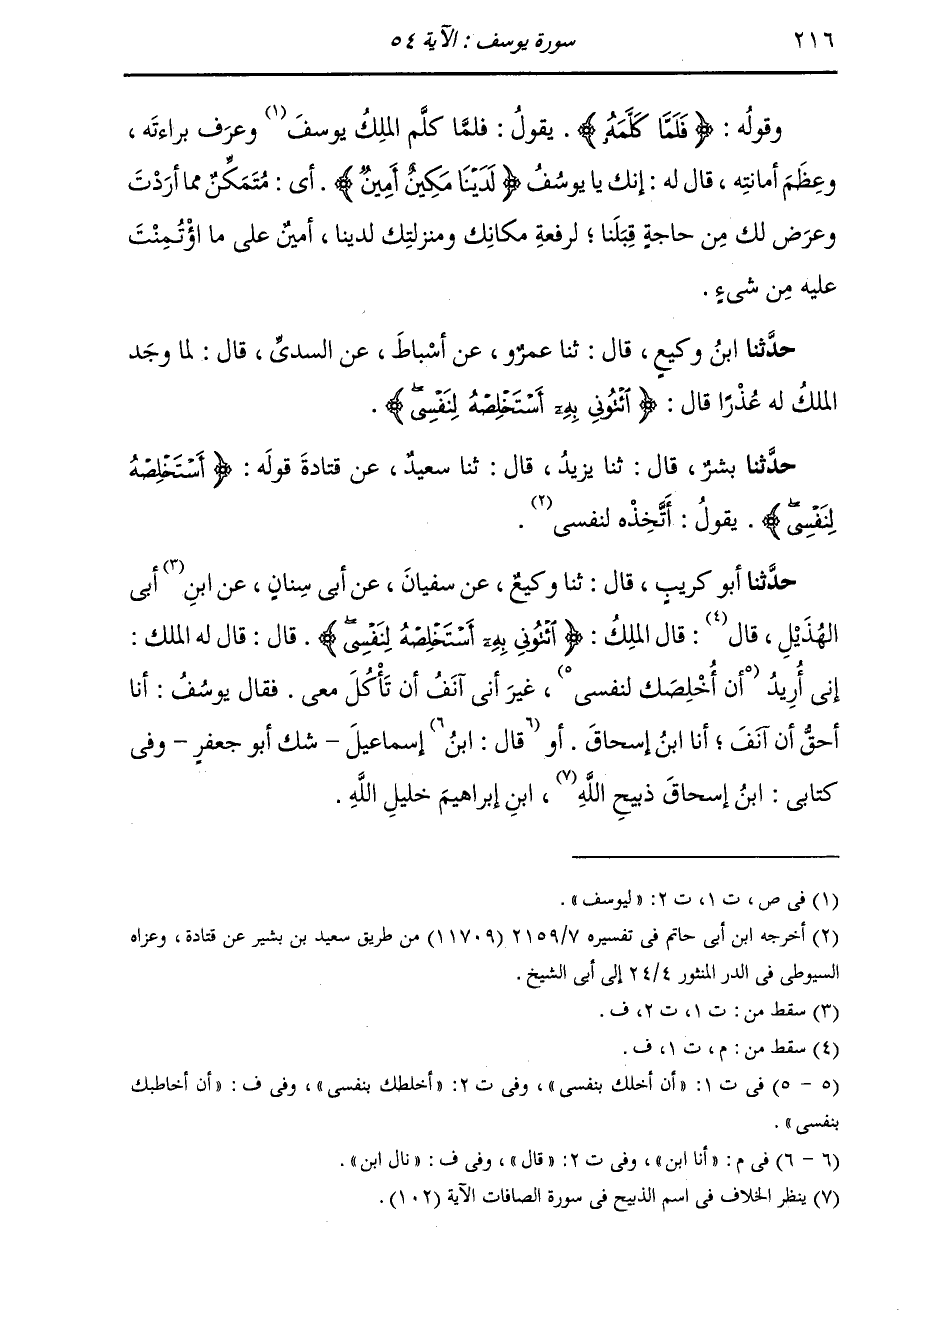 ٢١٦
سورة يوسف : الآية ٥٤
وقولُه : ﴿ فَلَمَّا كَلَّمَهُۥ ﴾ . يقولُ : فلمَّا كلَّم الملِكُ يوسفَ(١) وعرَف براءتَه ،
وعِظَمَ أمانتِه ، قال له : إنك يا يوسُفُ ﴿ لَدَيْنَا مَكِينٌ أَمِينٌ ﴾ . أى : مُتَمَكِّنٌ مما أرَدْتَ
وعرَض لك مِن حاجةٍ قِبَلَنا ؛ لرفعةِ مكانِك ومنزلتِك لدينا ، أمينٌ على ما اؤْتُمِنْتَ
عليه مِن شىءٍ .
حدَّثنا ابنُ وكيعٍ ، قال : ثنا عمرٌو ، عن أسْباطَ ، عن السدىِّ ، قال : لما وجَد
الملكُ له عُذْرًا قال : ﴿ ٱئْتُونِى بِهِۦٓ أَسْتَخْلِصْهُ لِنَفْسِىۖ ﴾ .
حدَّثنا بشرٌ ، قال : ثنا يزيدُ ، قال : ثنا سعيدٌ ، عن قتادةَ قولَه : ﴿ أَسْتَخْلِصْهُ
لِنَفْسِىۖ ﴾ . يقولُ : أَتَّخِذْه لنفسى(٢) .
حدَّثنا أبو كريبٍ ، قال : ثنا وكيعٌ ، عن سفيانَ ، عن أبى سِنانٍ ، عن ابنِ(٣) أبى
الهُذَيْلِ ، قال(٤) : قال الملِكُ : ﴿ ٱئْتُونِى بِهِۦٓ أَسْتَخْلِصْهُ لِنَفْسِىۖ ﴾ . قال : قال له الملك :
إنى أُرِيدُ (٥أن أُخْلِصَك لنفسى٥) ، غيرَ أنى آنَفُ أن تَأْكُلَ معى . فقال يوسُفُ : أنا
أحقُّ أن آنَفَ ؛ أنا ابنُ إسحاقَ . أو (٦قال : ابنُ٦) إسماعيلَ - شك أبو جعفرٍ - وفى
كتابى : ابنُ إسحاقَ ذبيحِ اللَّهِ(٧) ، ابنِ إبراهيمَ خليلِ اللَّهِ .
(١) فى ص ، ت ١، ت ٢: «ليوسف» .
(٢) أخرجه ابن أبى حاتم فى تفسيره ٢١٥٩/٧ (١١٧٠٩) من طريق سعيد بن بشير عن قتادة ، وعزاه
السيوطى فى الدر المنثور ٢٤/٤ إلى أبى الشيخ .
(٣) سقط من : ت ١، ت ٢، ف .
(٤) سقط من : م ، ت ١، ف .
(٥ - ٥) فى ت ١: «أن أخلك بنفسى» ، وفى ت ٢: «أخلطك بنفسى» ، وفى ف : «أن أخاطبك
بنفسى» .
(٦ - ٦) فى م : «أنا ابن» ، وفى ت ٢: «قال» ، وفى ف : «نال ابن» .
(٧) ينظر الخلاف فى اسم الذبيح فى سورة الصافات الآية (١٠٢) .